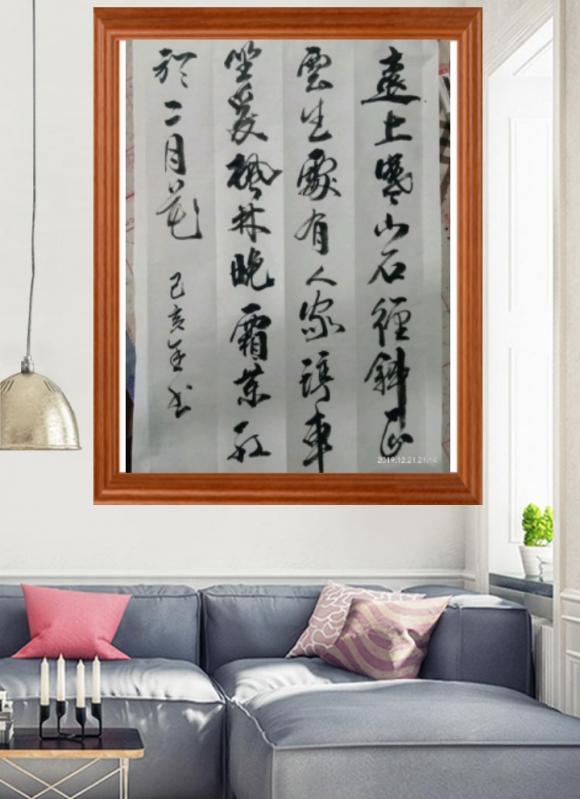 遠上寒山石徑斜白
雲生處有人家停車
坐愛楓林晚霜葉紅
於二月花
己亥书
2019.12.21